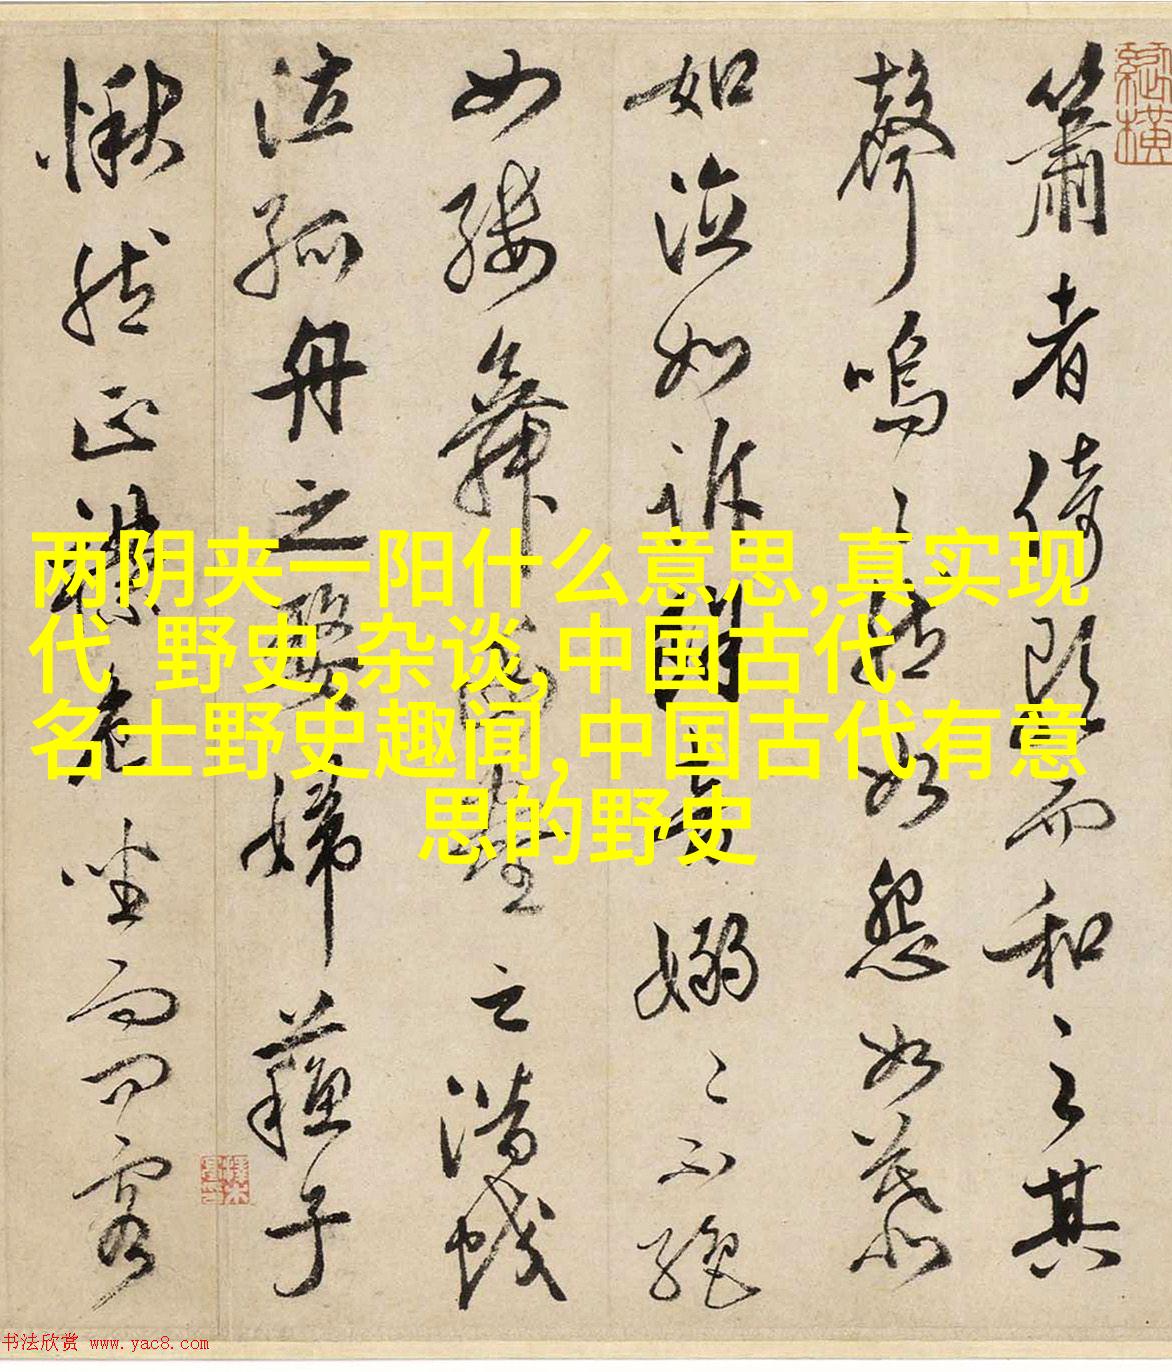 簫者倚歌而和之其
聲嗚〻然如怨如慕
如泣如訴餘音嫋〻不絕
如縷舞幽壑之潛蛟
泣孤舟之嫠婦蘇子
愀然正襟危坐而問客
两阴夹一阳什么意思,真实现
代 野史,杂谈,中国古代
名士野史趣闻,中国古代有意
思的野史
书法欣赏 www.yac8.com